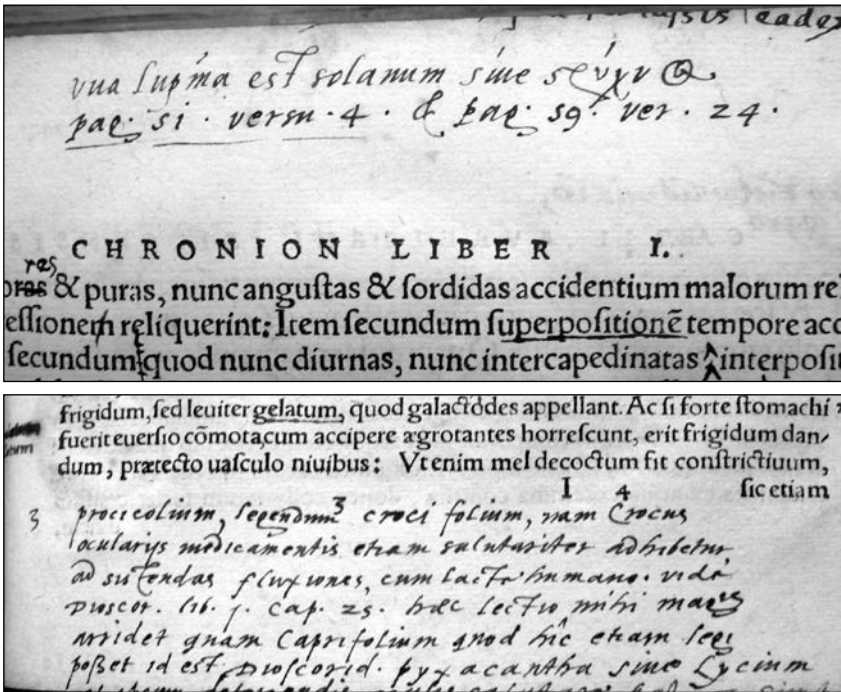 uua lupina est solanum siue
pag. 51 . versu . 4 . & pag. 59. ver . 24 .
CHRONION LIBER I.
res
oras & puras, nunc anguſtas & ſordidas accidentium malorum re
eſſionem reliquerint: Item ſecundum ſuperpoſitionē tempore acc
ſecundum quod nunc diurnas, nunc intercapedinatas interpoſit
frigidum, ſed leuiter gelatum, quod galactódes appellant. Ac ſi forte ſtomachi
fuerit euerſio cōmota, cum accipere ægrotantes horreſcunt, erit frigidum dan/
dum, prætecto uaſculo niuibus: Vt enim mel decoctum fit conſtrictiuum,
I 4 ſic etiam
3 procicolium, legendum 3 croci folium, nam Crocus
ocularijs medicamentis etiam salutariter adhibetur
ad fluxiones, cum lacte humano. vide
Dioscor. lib. 1. cap. 25. hæc lectio mihi magis
arridet quam Caprifolium quod hîc etiam legi
poßet id est, Dioscorid. pyxacantha siue Lycium